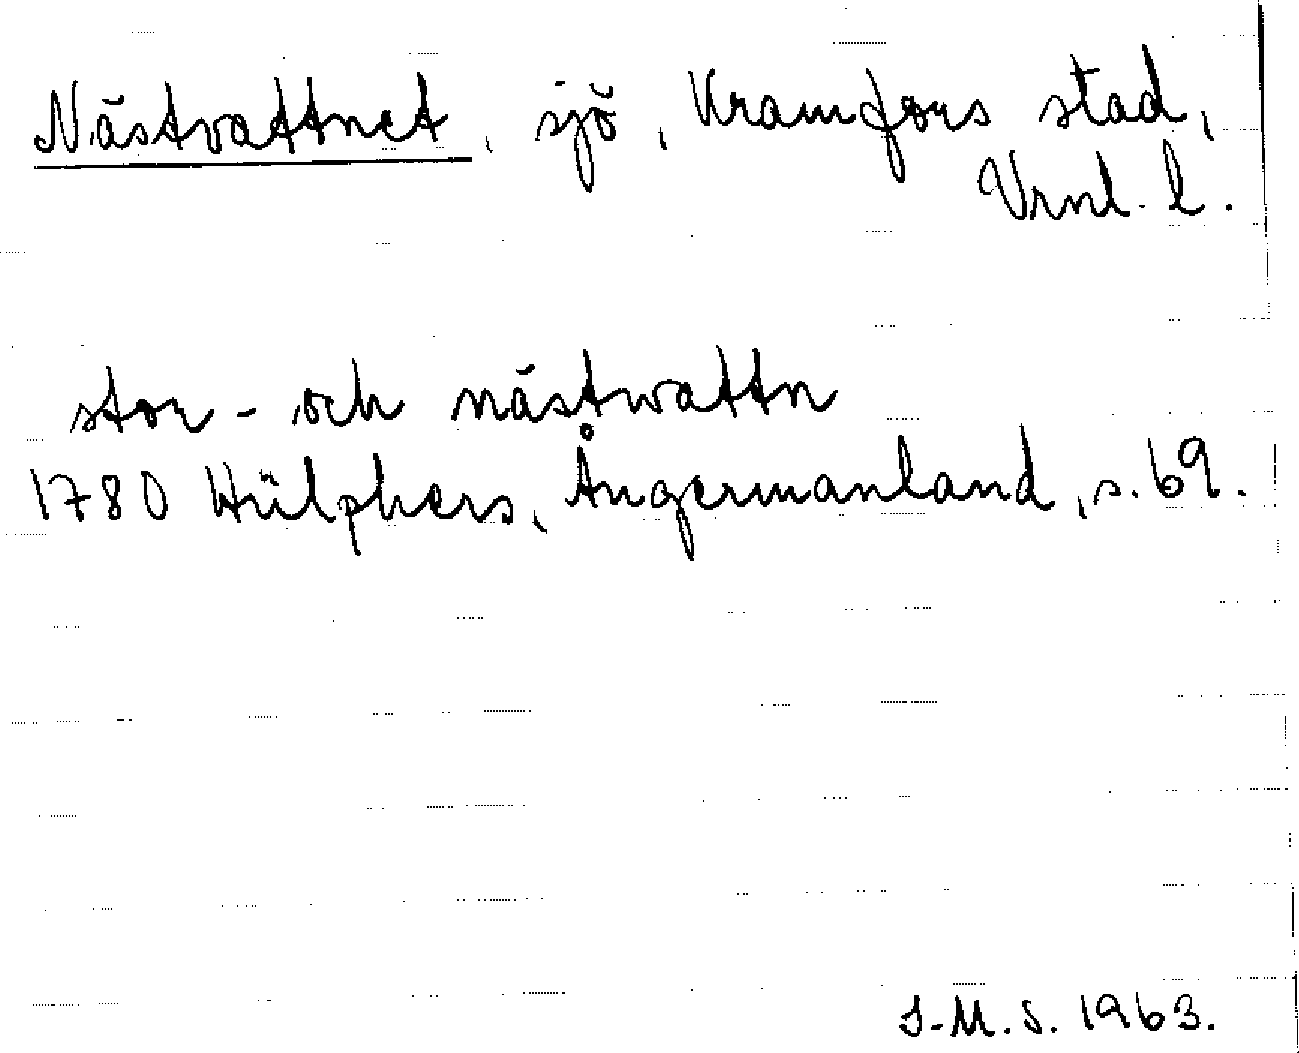 Nästvattnet, sjö, Kramfors stad,
Vrnl. l.
stor- och nästwattn
1780 Hülphers, Ångermanland, s. 69.
I-M.S. 1963.